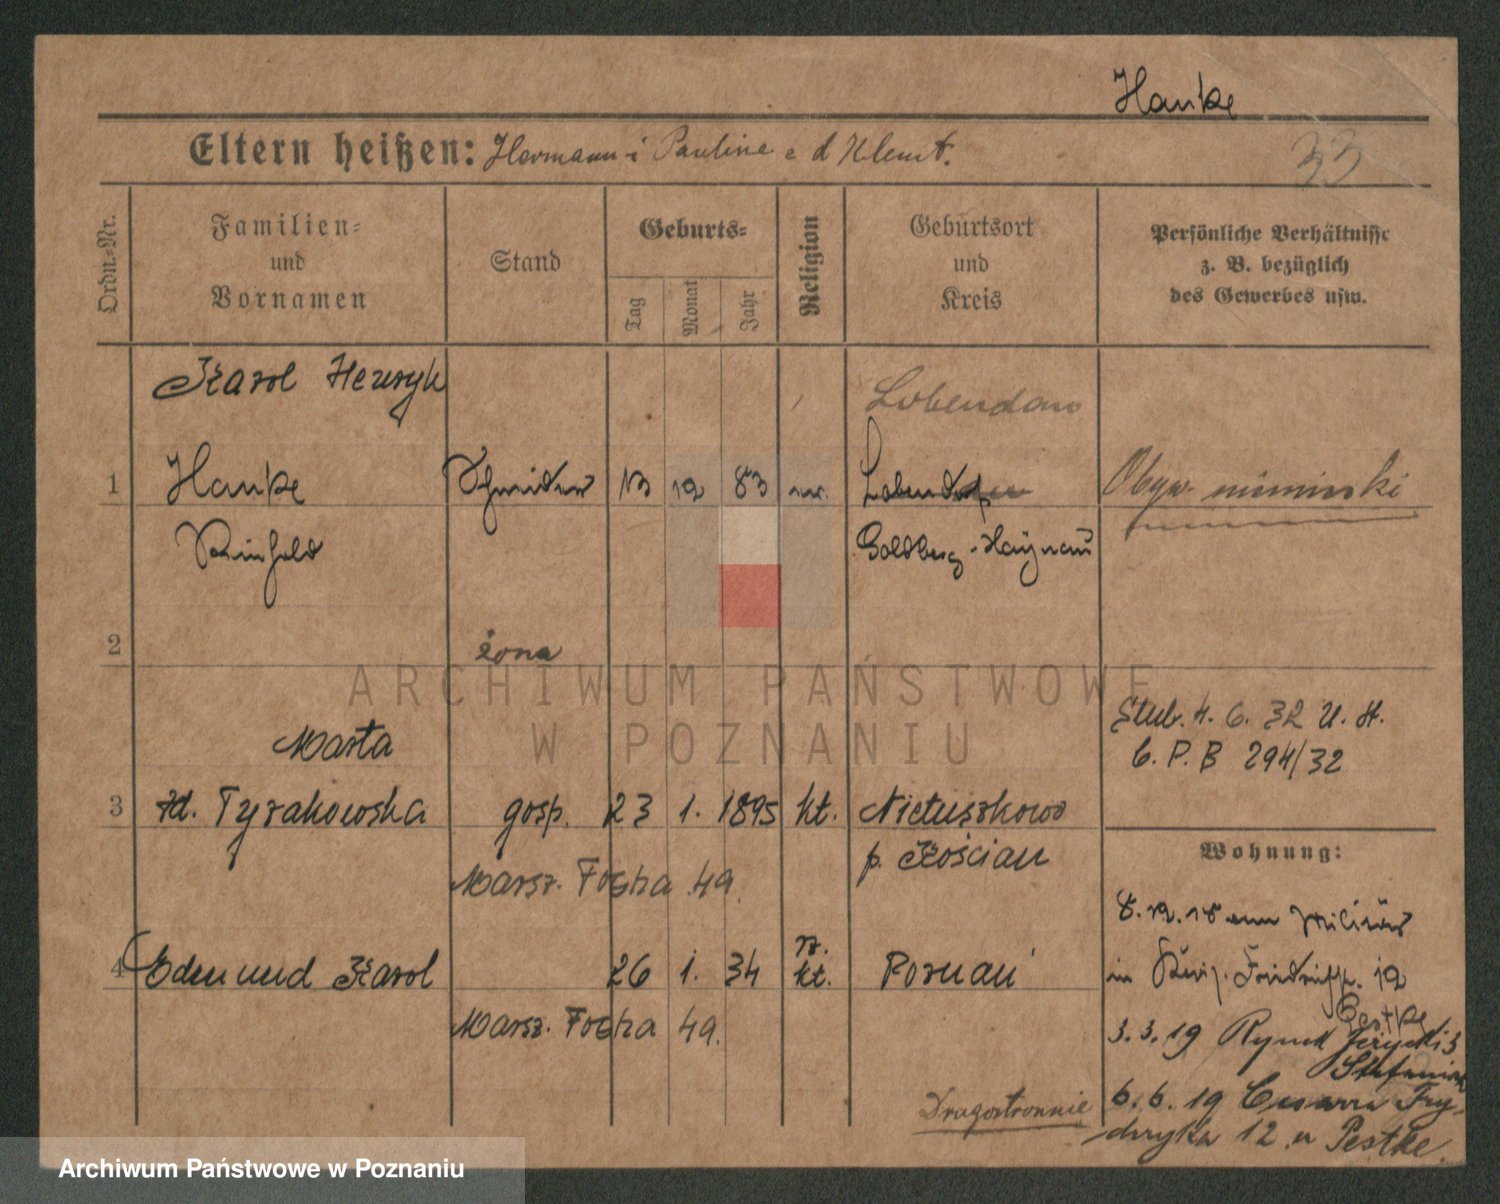 Hanke
Eltern heißen: Hermann i Pauline z d Klemt.
33
Ordn.-Nr.
Familien-
und
Vornamen
Stand
Geburts-
Tag
Monat
Jahr
Religion
Geburtsort
und
Kreis
Persönliche Verhältnisse
z. B. bezüglich
des Gewerbes usw.
Karol Henryk
Lobendau
1 Hanke Schneider 13 12 83 Lobendorf Obyw. niemiecki
Reinhold Goldberg-Haynau
2 żona
Marta
3 zd. Tyrakowska gosp. 23 1. 1895 kt. Nietuszkowo
p. Kościan
Marsz. Focha 49.
4 Edmund Karol 26 1. 34 rz. kt. Poznań
Marsz. Focha 49.
Ślub. 4. 6. 32 U. St.
C. P. B 294/32
Wohnung:
8. 12. 18 vom Militär
in Friedrichstr. 12
Pestke
3. 3. 19 Rynek Jeżycki 3
6. 6. 19 Cesarza Fry-
deryka 12 u Pestke.
Drugostronnie
ARCHIWUM PAŃSTWOWE
W POZNANIU
Archiwum Państwowe w Poznaniu